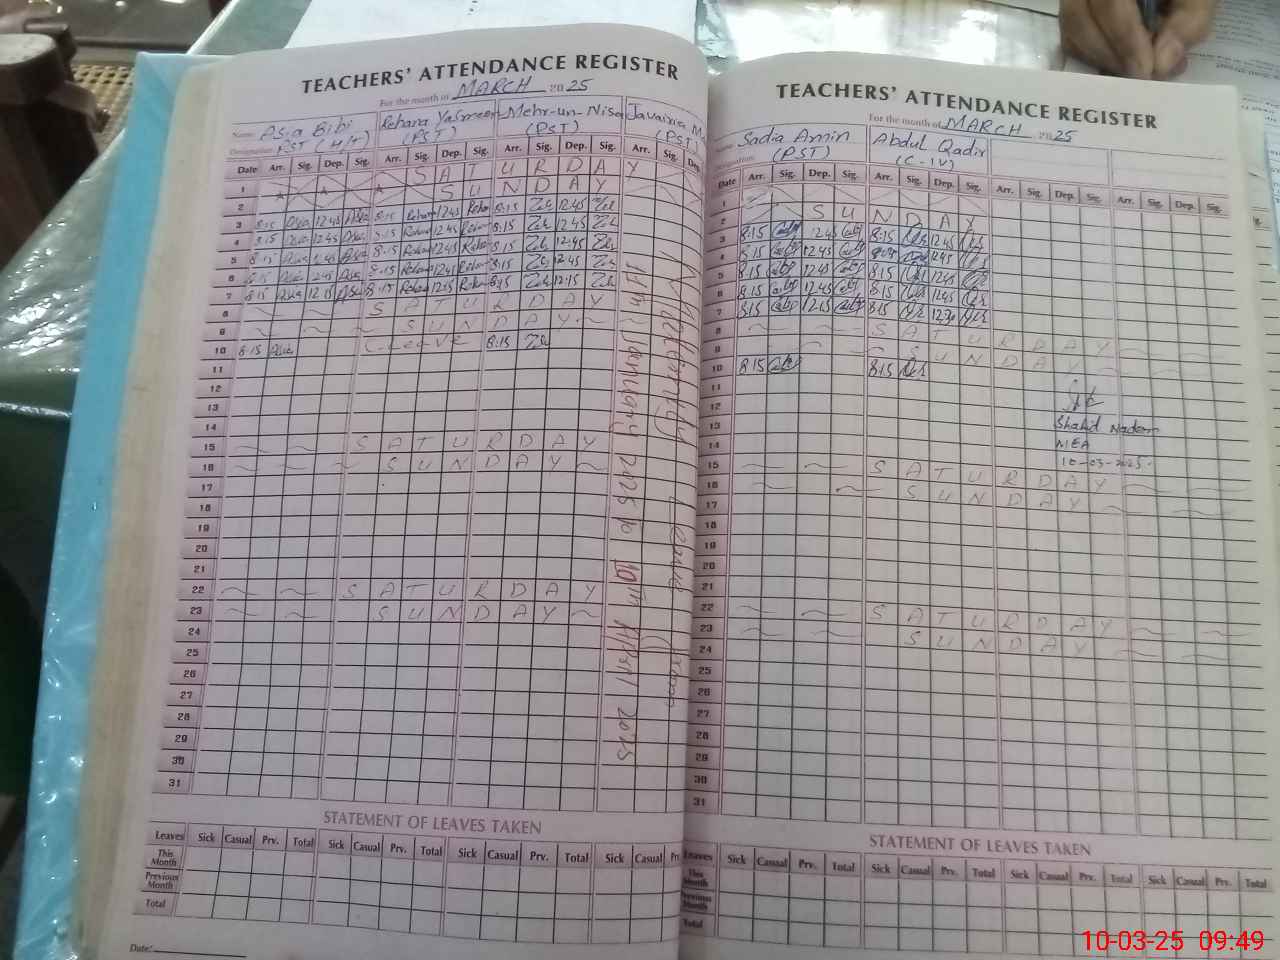 TEACHERS' ATTENDANCE REGISTER
For the month of MARCH 2025
Name: Asia Bibi Rehana Yasmeen Mehr-un-Nisa Javairia
Designation: PST (H/T) (PST) (PST) (PST)
Date Arr. Sig. Dep. Sig. Arr. Sig. Dep. Sig. Arr. Sig. Dep. Sig. Arr. Sig. Dep.
1 SATURDAY
2 SUNDAY
3 8:15 Asia 12:45 Asia 8:15 Rehana 12:45 Rehana 8:15 12:45
4 8:15 Asia 12:45 Asia 8:15 Rehana 12:45 Rehana 8:15 12:45
5 8:15 Asia 12:45 Asia 8:15 Rehana 12:45 Rehana 8:15 12:45
6 8:15 Asia 12:45 Asia 8:15 Rehana 12:45 Rehana 8:15 12:45
7 8:15 Asia 12:15 Asia 8:15 Rehana 12:15 Rehana 8:15 12:15
8 SATURDAY
9 SUNDAY
10 8:15 Asia C-Leave 8:15
11
12
13
14
15 SATURDAY
16 SUNDAY
17
18
19
20
21
22 SATURDAY
23 SUNDAY
24
25
26
27
28
29
30
31
Maternity Leave From
11th January 2025 to 10th April 2025
STATEMENT OF LEAVES TAKEN
Leaves Sick Casual Prv. Total Sick Casual Prv. Total Sick Casual Prv. Total Sick Casual
This Month
Previous Month
Total
Date:
TEACHERS' ATTENDANCE REGISTER
For the month of MARCH 2025
Sadia Amin Abdul Qadir
(PST) (C-IV)
Date Arr. Sig. Dep. Sig. Arr. Sig. Dep. Sig. Arr. Sig. Dep. Sig. Arr. Sig. Dep. Sig.
1
2 SUNDAY
3 8:15 12:45 8:15 12:45
4 8:15 12:45 12:45
5 8:15 12:45 8:15 12:45
6 8:15 12:45 8:15 12:45
7 8:15 12:15 8:15 12:30
8 SATURDAY
9 SUNDAY
10 8:15 8:15
11
12
13
14
15 SATURDAY
16 SUNDAY
17
18
19
20
21
22 SATURDAY
23 SUNDAY
24
25
26
27
28
29
30
31
Shahid Nadeem
MEA
10-03-2025.
STATEMENT OF LEAVES TAKEN
Leaves Sick Casual Prv. Total Sick Casual Prv. Total Sick Casual Prv. Total Sick Casual Prv. Total
This Month
Previous Month
Total
10-03-25 09:49